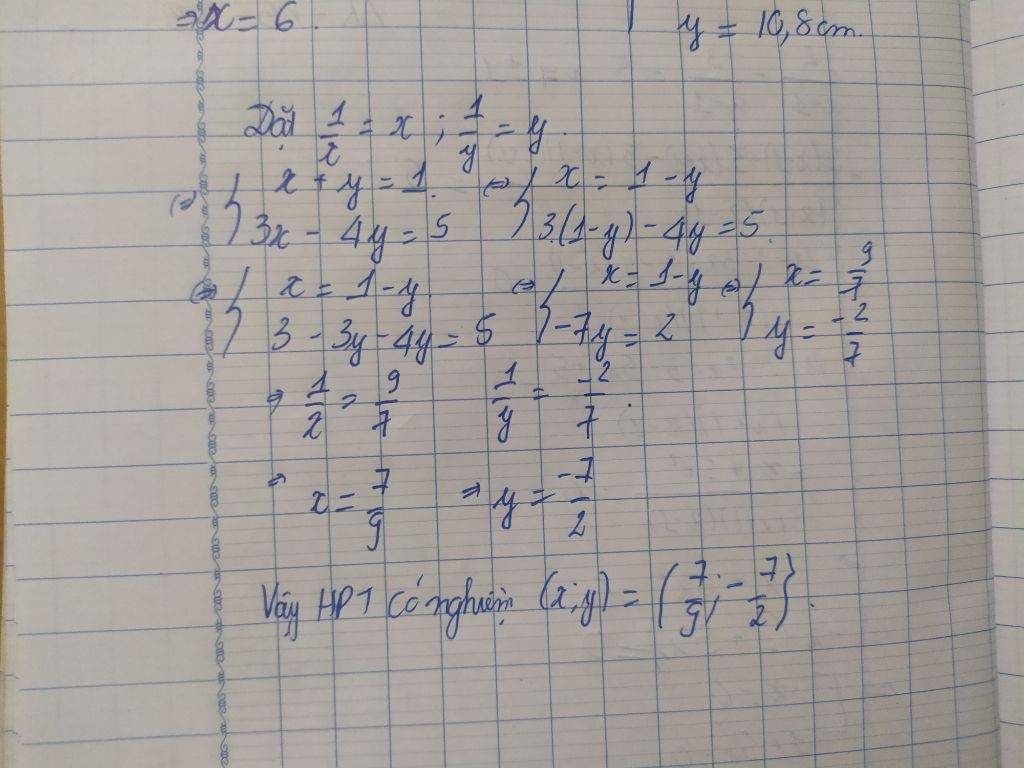 ⇒ x = 6. y = 10,8cm.
Đặt 1/x = x ; 1/y = y.
(⇒) { x + y = 1. ⇔ { x = 1 - y
3x - 4y = 5 3.(1-y) - 4y = 5.
⇔ { x = 1 - y. ⇔ { x = 1 - y ⇔ { x = 9/7
3 - 3y - 4y = 5 -7y = 2 y = -2/7
⇒ 1/x = 9/7 1/y = -2/7.
⇒ x = 7/9 ⇒ y = -7/2
Vậy HPT có nghiệm (x;y) = {7/9; -7/2}.